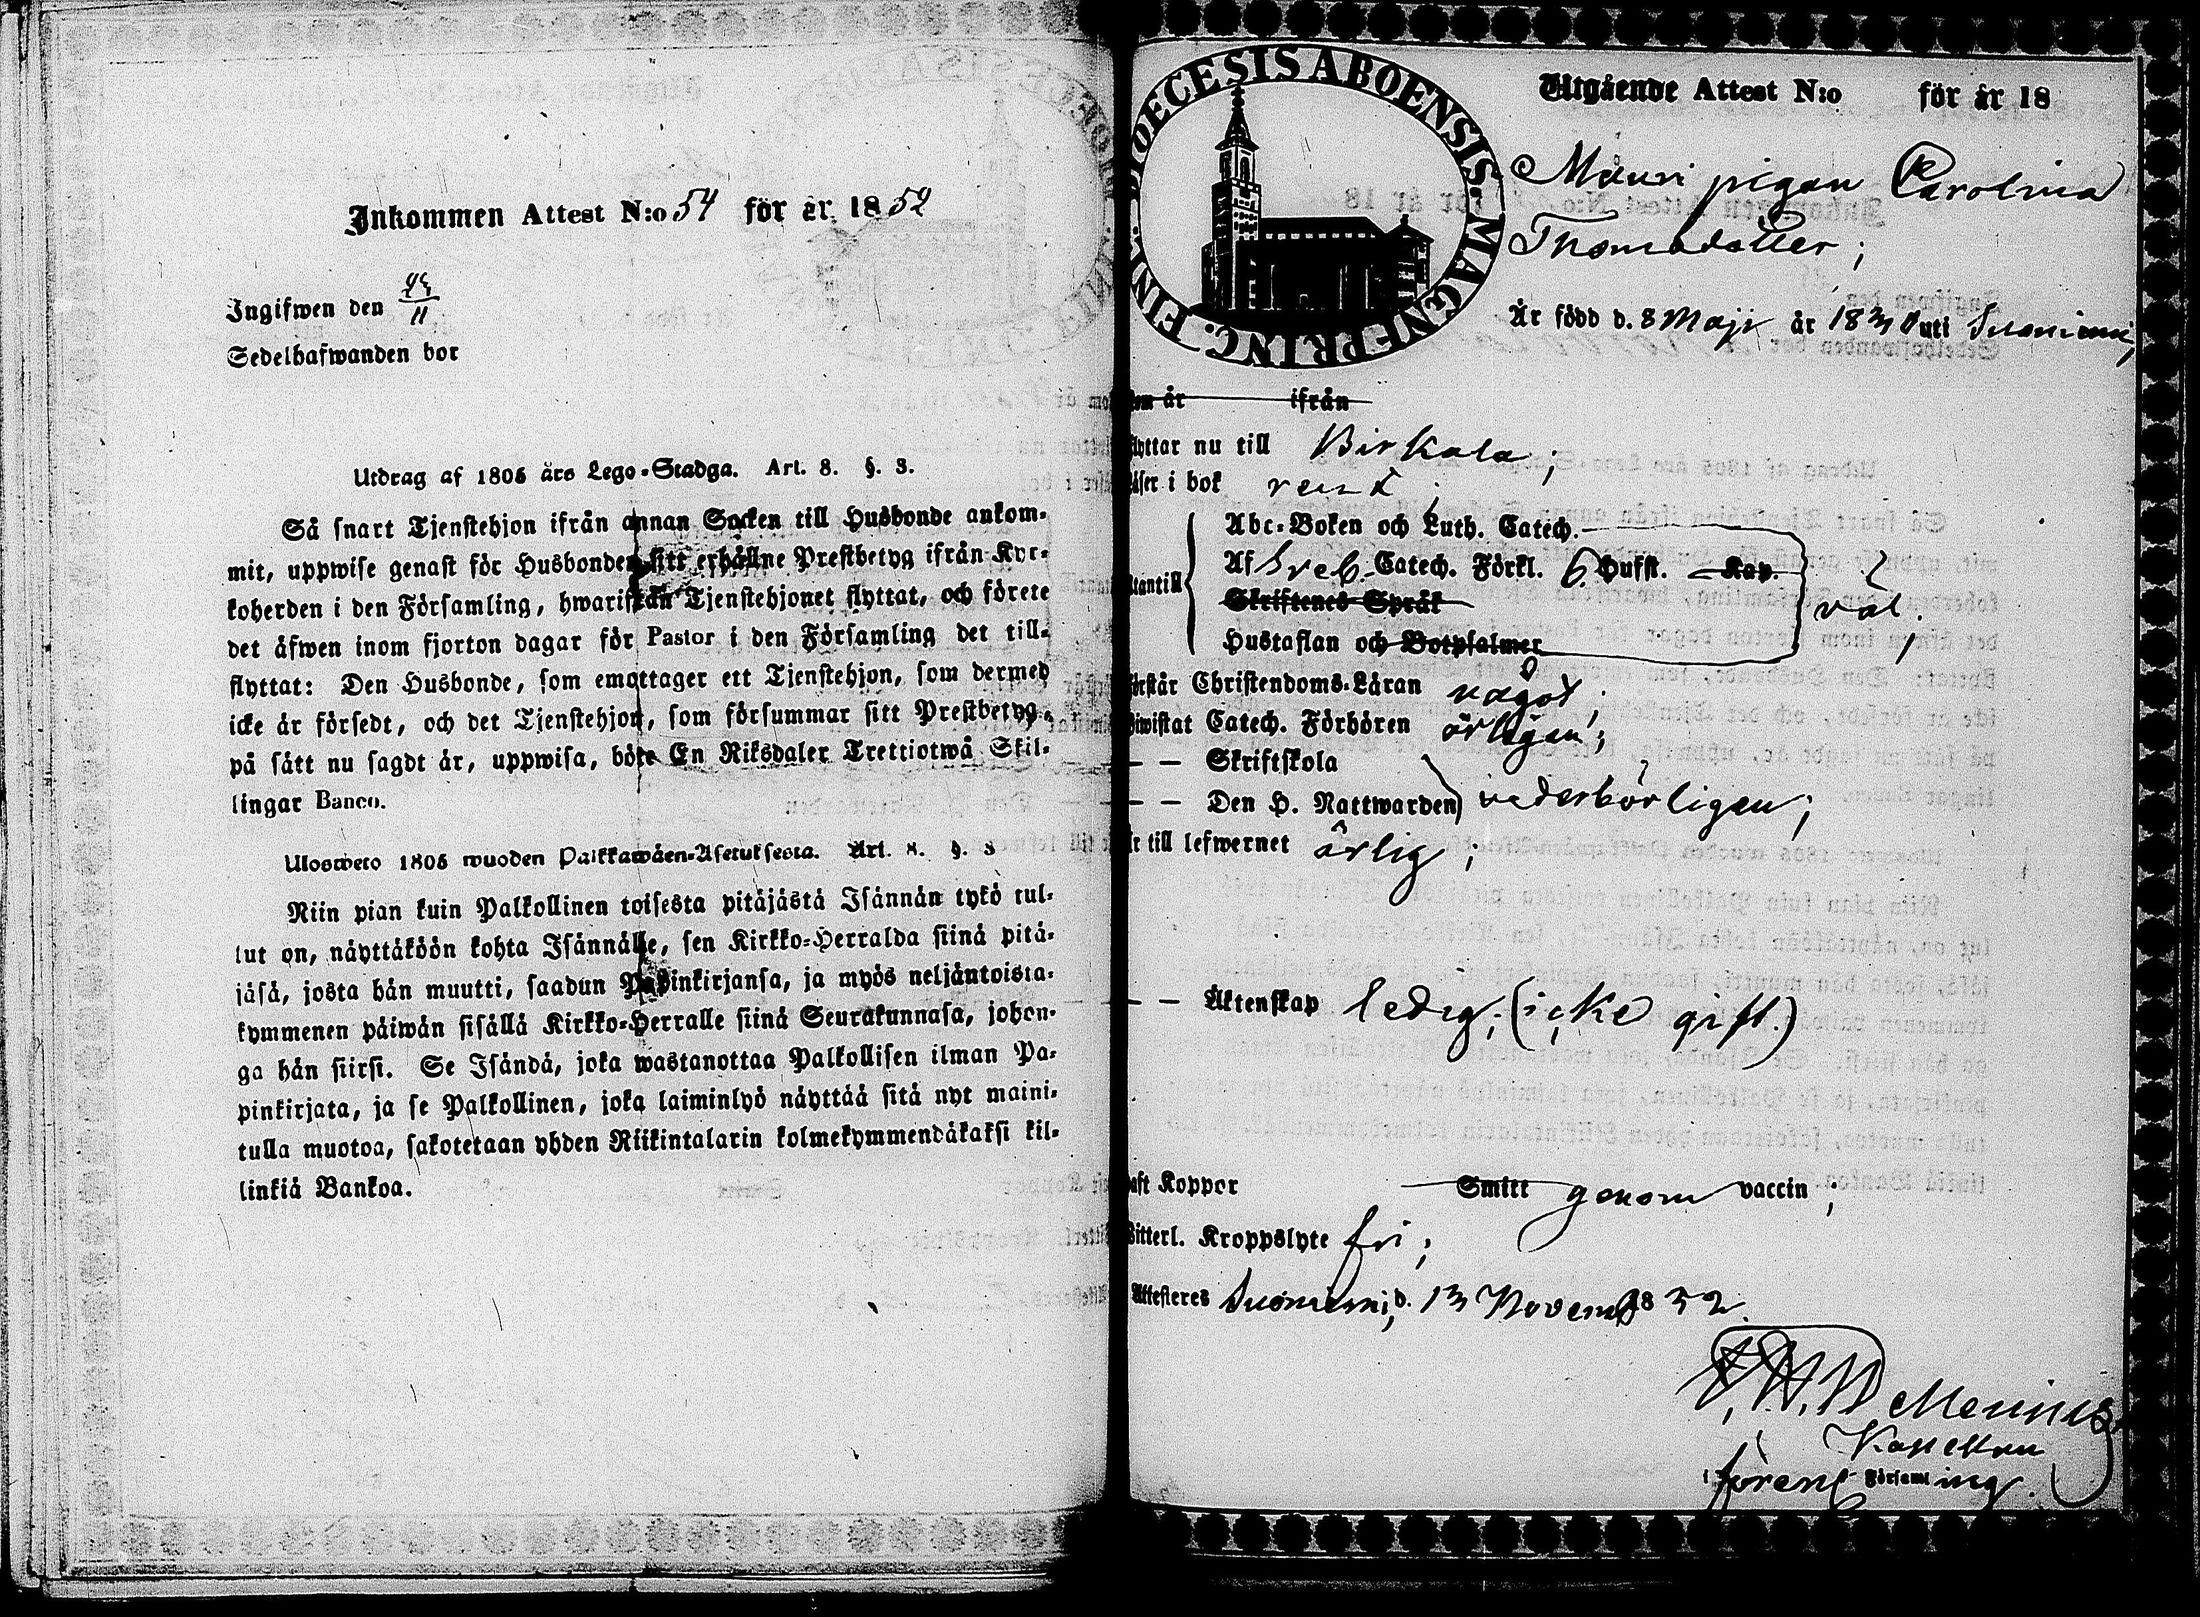 Inkommen Attest N:o 54 för år 1852
Ingifwen den 23/11
Sedelhafwanden bor
Utdrag af 1805 års Lego-Stadga. Art. 8. §. 3.
Så snart Tjenstehjon ifrån annan Socken till Husbonde ankom-
mit, uppwise genast för Husbonden sitt erhållne Prestbetyg ifrån Kyr-
koherden i den Församling, hwarifrån Tjenstehjonet flyttat, och förete
det äfwen inom fjorton dagar för Pastor i den Församling det till-
flyttat: Den Husbonde, som emottager ett Tjenstehjon, som dermed
icke är försedt, och det Tjenstehjon, som försummar sitt Prestbetyg,
på sätt nu sagdt är, uppwisa, böte En Riksdaler Trettiotwå Skil-
lingar Banco.
Ulosweto 1805 wuoden Palkkawäen-Asetuksesta. Art. 8. §. 3
Niin pian kuin Palkollinen toisesta pitäjästä Isännän tykö tul-
lut on, näyttäköön kohta Isännälle, sen Kirkko-Herralda siinä pitä-
jäsä, josta hän muutti, saadun Papinkirjansa, ja myös neljäntoista-
kymmenen päiwän sisällä Kirkko-Herralle siinä Seurakunnasa, johon-
ga hän siirsi. Se Isändä, joka wastanottaa Palkollisen ilman Pa-
pinkirjata, ja se Palkollinen, joka laiminlyö näyttää sitä nyt maini-
tulla muotoa, sakotetaan yhden Riikintalarin kolmekymmendäkaksi kil-
linkiä Bankoa.
DIOECESIS ABOENSIS. MAGN. PRINC. FINL.
Utgående Attest N:o för år 18
Mauri pigan Carolina
Thomadotter;
Är född d. 8 Maji år 1830 uti Suoniemi;
om år ifrån
flyttar nu till Birkala;
läser i bok rent;
Abc-Boken och Luth. Catech.
Af Sveb. Catech. Förkl. 6. Hufst. Kap.
utantill
Skriftenes Språk
väl;
Hustaflan och Botpsalmer
förstår Christendoms-Läran något;
biwistat Catech. Förhören årligen;
— — Skriftskola
— — Den H. Nattwarden vederbörligen;
är till lefwernet ärlig;
— — Äktenskap ledig; (icke gift.)
haft Koppor Smitt genom vaccin;
Witterl. Kroppslyte fri;
Attesteres Suoniemi, d. 13 Novemb 1852
Kapellan
i förent Församling.